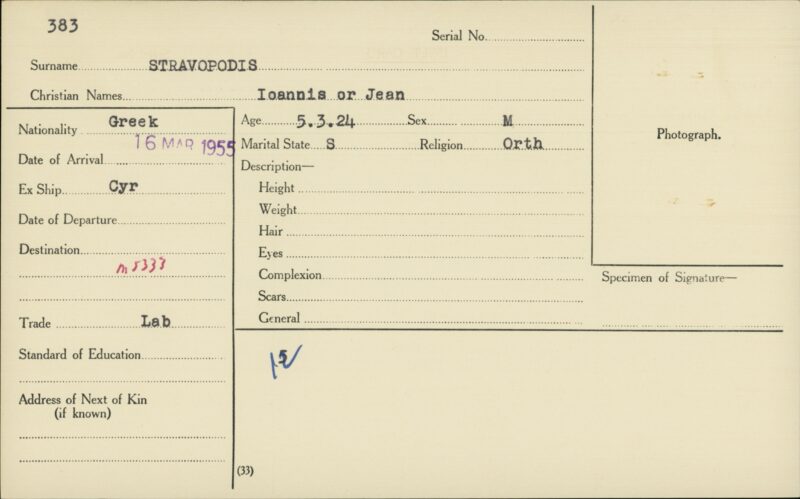 383
Serial No.
Surname STRAVOPODIS
Christian Names Ioannis or Jean
Nationality Greek
Date of Arrival 16 MAR 1955
Ex Ship Cyr
Date of Departure
Destination
m 5333
Trade Lab
Standard of Education
Address of Next of Kin
(if known)
Age 5.3.24 Sex M
Marital State S Religion Orth
Description—
Height
Weight
Hair
Eyes
Complexion
Scars
General
Photograph.
Specimen of Signature—
(33)